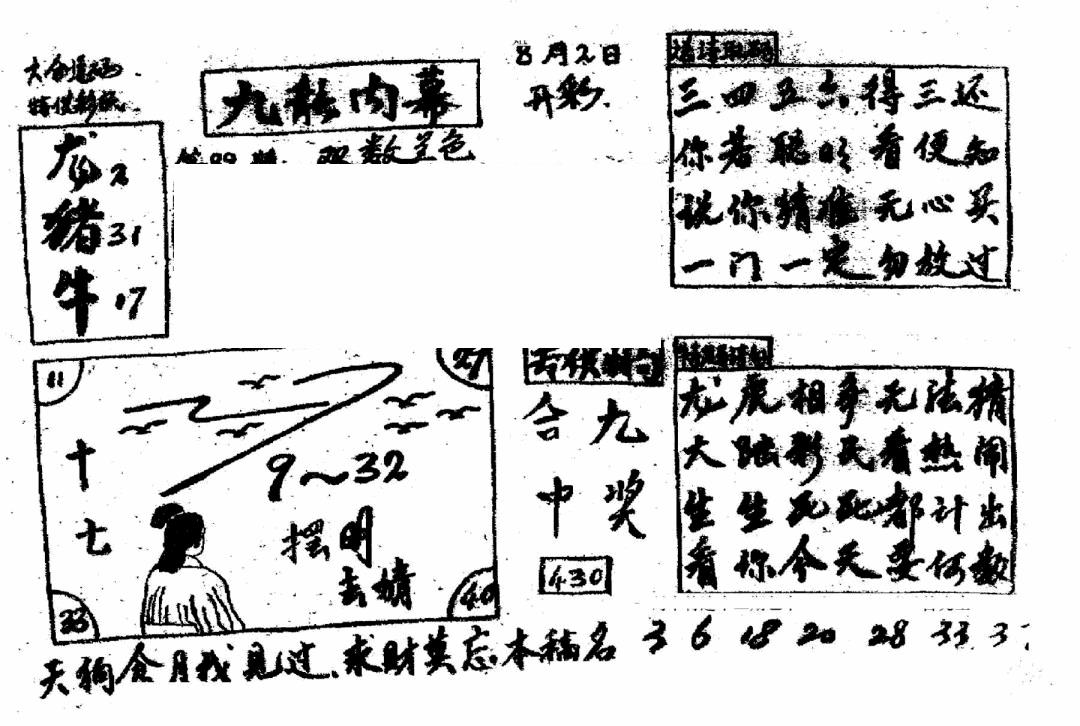 8月2日
开彩.
九龍内幕
双数
色
龙 2
猪 31
牛 17
三四五六得三还
你若聪明看便知
说你精准无心买
一门一定勿放过
11
27
十七
9～32
摆明
33
40
合九
中奖
430
龙虎相争无法猜
大 彩民看热闹
生生死死都计出
看你今天要何数
天狗食月我见过.求财莫忘本稿名
3 6 18 20 28 33